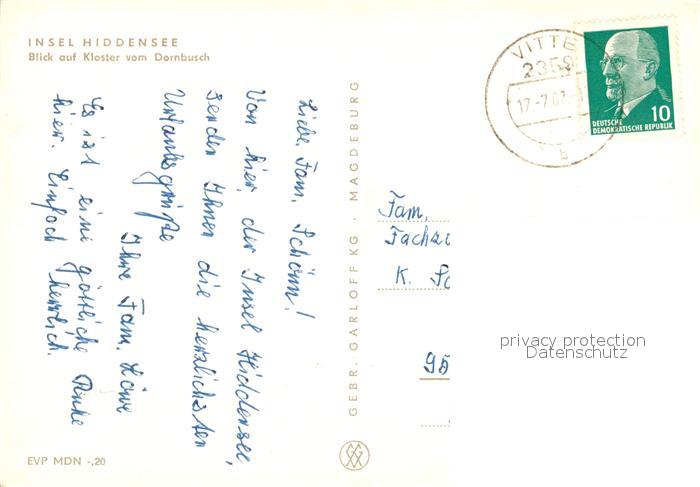 INSEL HIDDENSEE
Blick auf Kloster vom Dornbusch
Liebe Fam. Schönn!
Von hier der Insel Hiddensee,
senden Ihnen die herzlichsten
Urlaubsgrüße
Ihre Fam. Löwe
Es ist eine göttliche Ruhe
hier. Einfach herrlich.
EVP MDN -,20
GEBR. GARLOFF KG · MAGDEBURG
VITTE
2359
17-7.67
b
10
DEUTSCHE
DEMOKRATISCHE REPUBLIK
Fam.
K.
95
privacy protection
Datenschutz